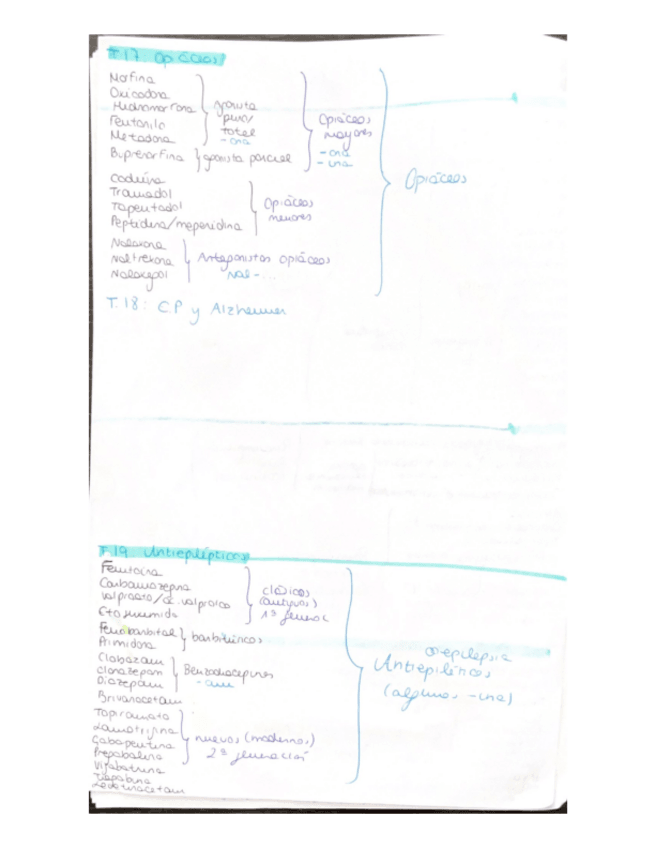 T.17: Opiáceos
Morfina
Oxicodona
Hidromorfona
Fentanilo
Metadona
agonista
puro/
total
-ona
Buprenorfina
agonista parcial
Opiáceos
mayores
-ona
-ina
Codeína
Tramadol
Tapentadol
Peptidina/meperidina
Opiáceos
menores
Naloxona
Naltrexona
Naloxegol
Antagonistas opiáceos
Nal-...
Opiáceos
T.18: C.P y Alzheimer
T.19 Antiepilépticos
Fenitoína
Carbamazepina
Valproato/ác. valproico
Etosuximida
clásicos
(antiguos)
1ª generac
Fenobarbital
Primidona
barbitúricos
Clobazam
Clonazepam
Diazepam
Benzodiacepinas
-am
Brivaracetam
Topiramato
Lamotrigina
Gabapentina
Pregabalina
Vigabatrina
Tiagabina
nuevos (modernos)
2ª generación
epilepsia
(algunos -ina)